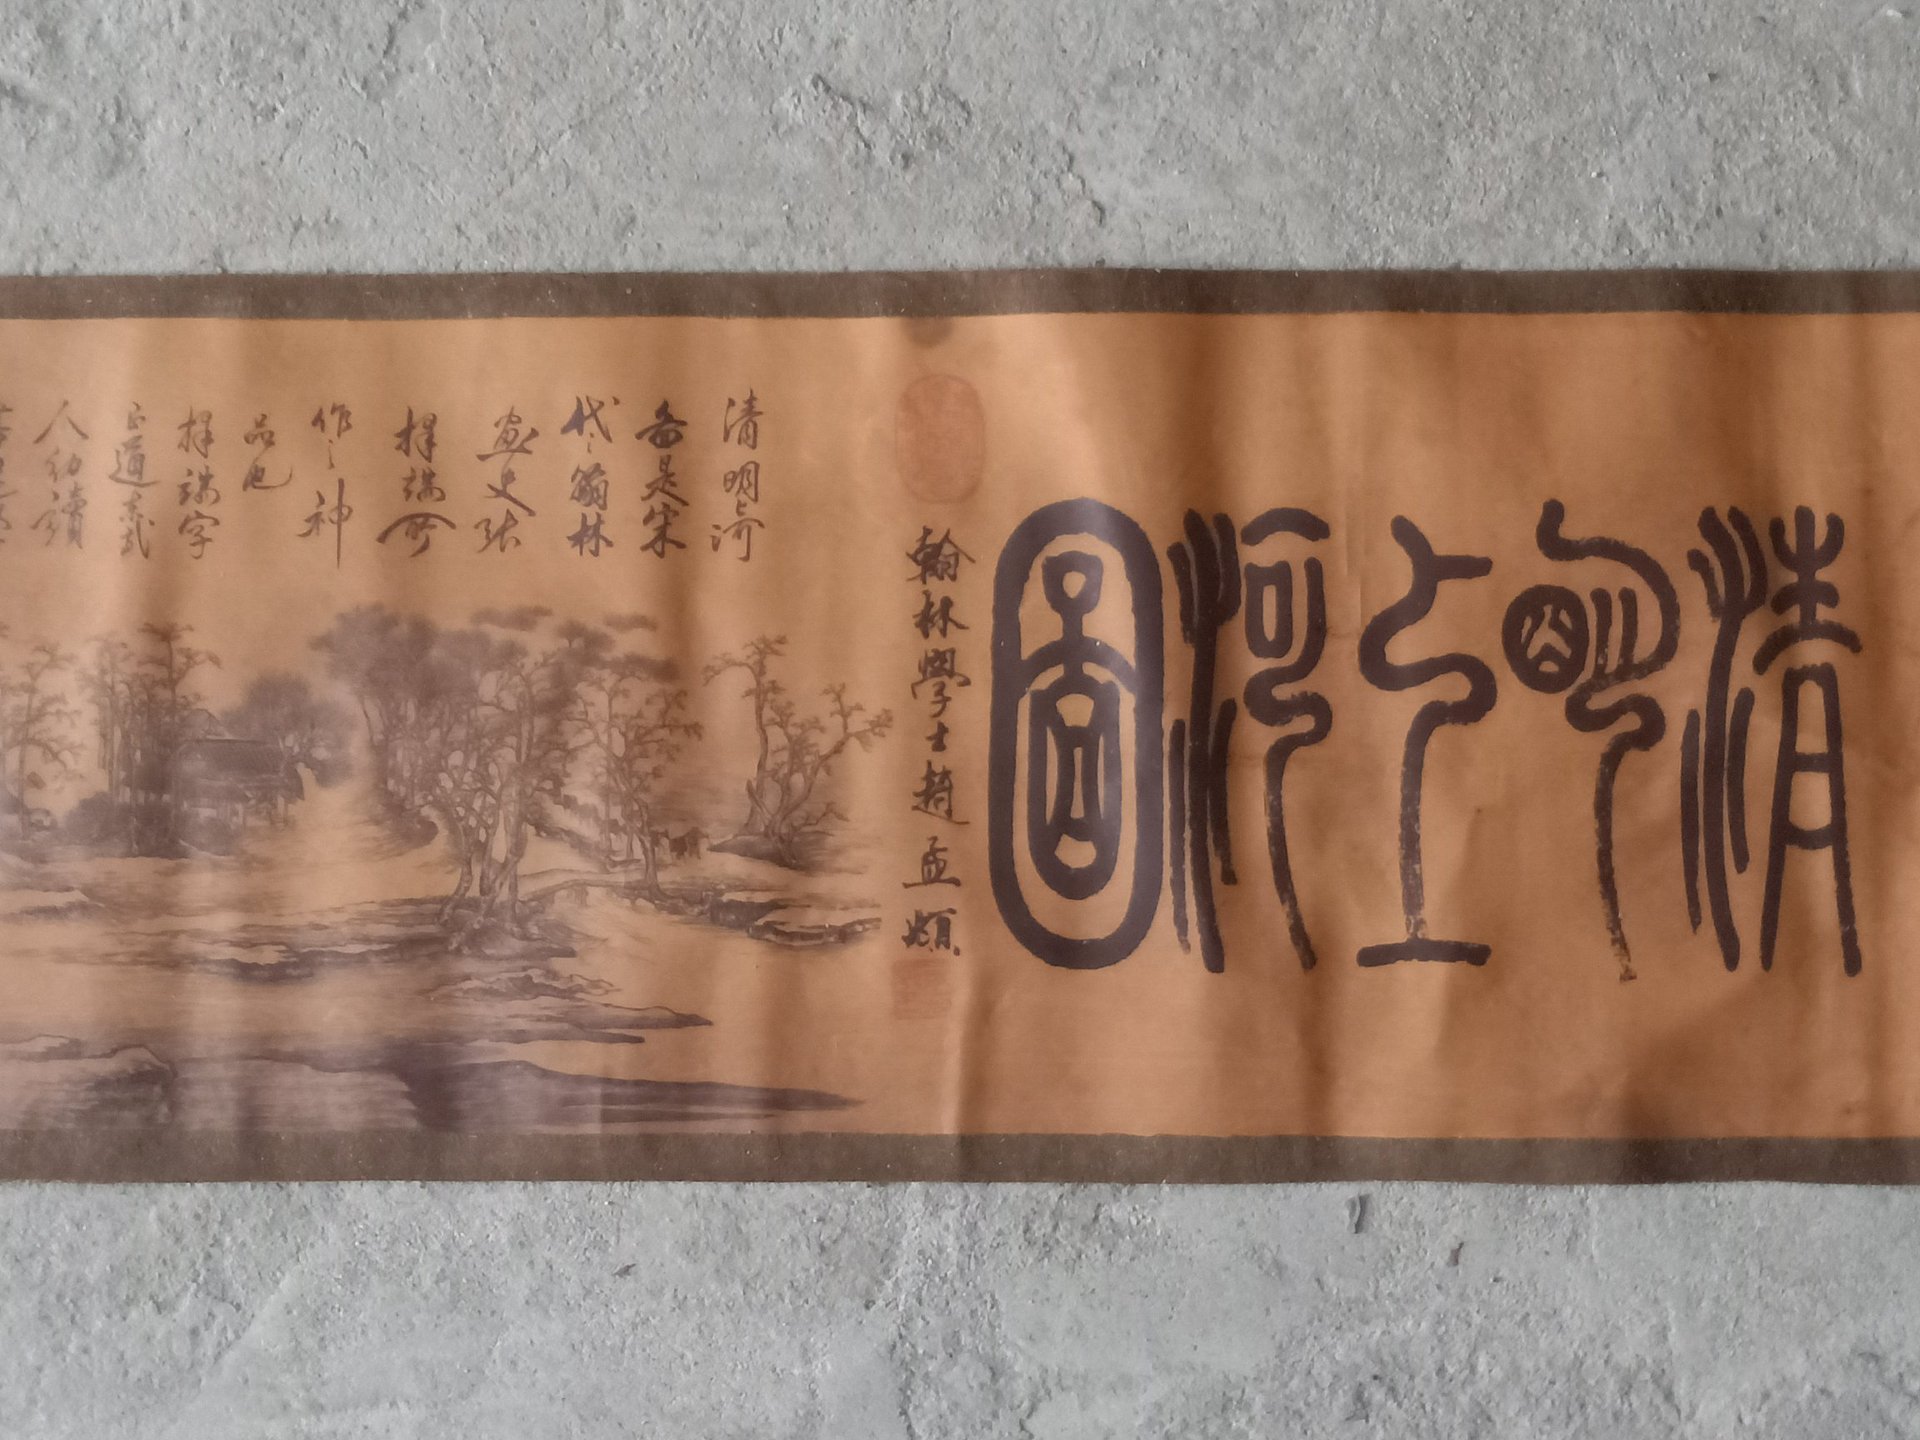 清明上河圖
翰林學士趙孟頫
清明上河
圖是宋
代之翰林
畫史張
擇端所
作之神
品也
擇端字
正道東武
人幼讀